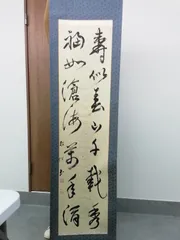 壽似春山千載秀
福如滄海萬年清